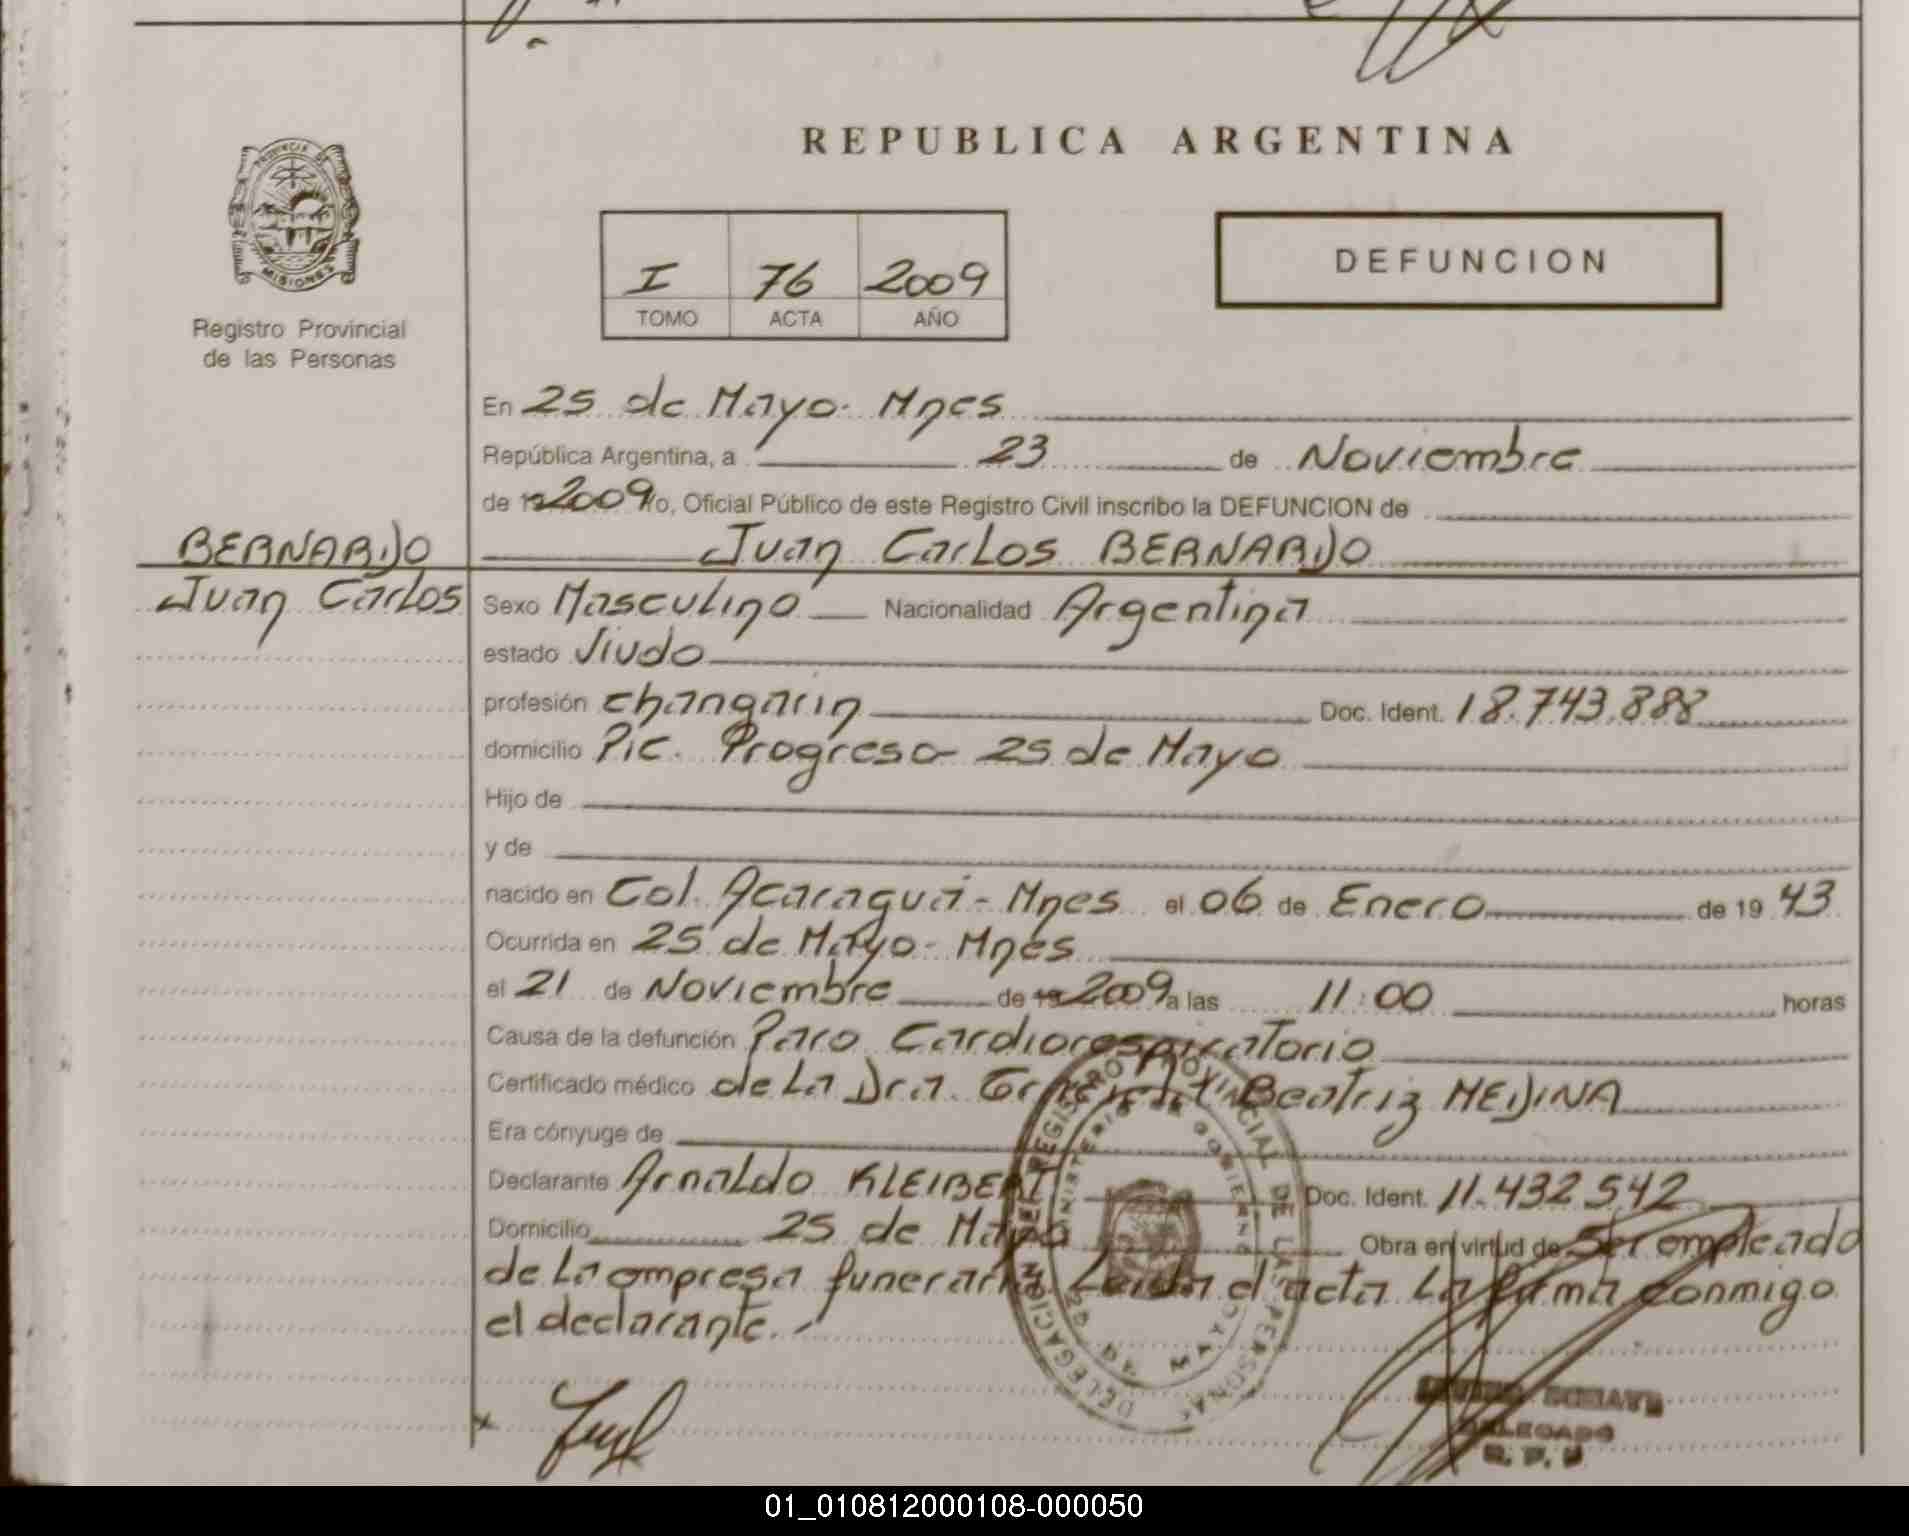 REPUBLICA ARGENTINA
PROVINCIA DE
MISIONES
Registro Provincial
de las Personas
I 76 2009
TOMO ACTA AÑO
DEFUNCION
En 25 de Mayo - Mnes
República Argentina, a 23 de Noviembre
de 19 2009 yo, Oficial Público de este Registro Civil inscribo la DEFUNCION de
BERNARDO
Juan Carlos BERNARDO
Juan Carlos
Sexo Masculino Nacionalidad Argentina
estado Viudo
profesión changarin Doc. Ident. 18.743.888
domicilio Pic. Progreso - 25 de Mayo
Hijo de
y de
nacido en Col. Acaragua - Mnes el 06 de Enero de 19 43
Ocurrida en 25 de Mayo - Mnes
el 21 de Noviembre de 19 2009 a las 11:00 horas
Causa de la defunción Paro Cardiorespiratorio
Certificado médico de La Dra. Beatriz MEDINA
Era cónyuge de
Declarante Arnaldo KLEIBERT Doc. Ident. 11.432.542
Domicilio 25 de Mayo Obra en virtud de Ser empleado
de La empresa funeraria. Leida el acta La firma conmigo
el declarante.
REGISTRO PROVINCIAL DE LAS PERSONAS
MINISTERIO DE GOBIERNO
DELEGACION
25 DE MAYO
DELEGADO
R. P. P
01_010812000108-000050